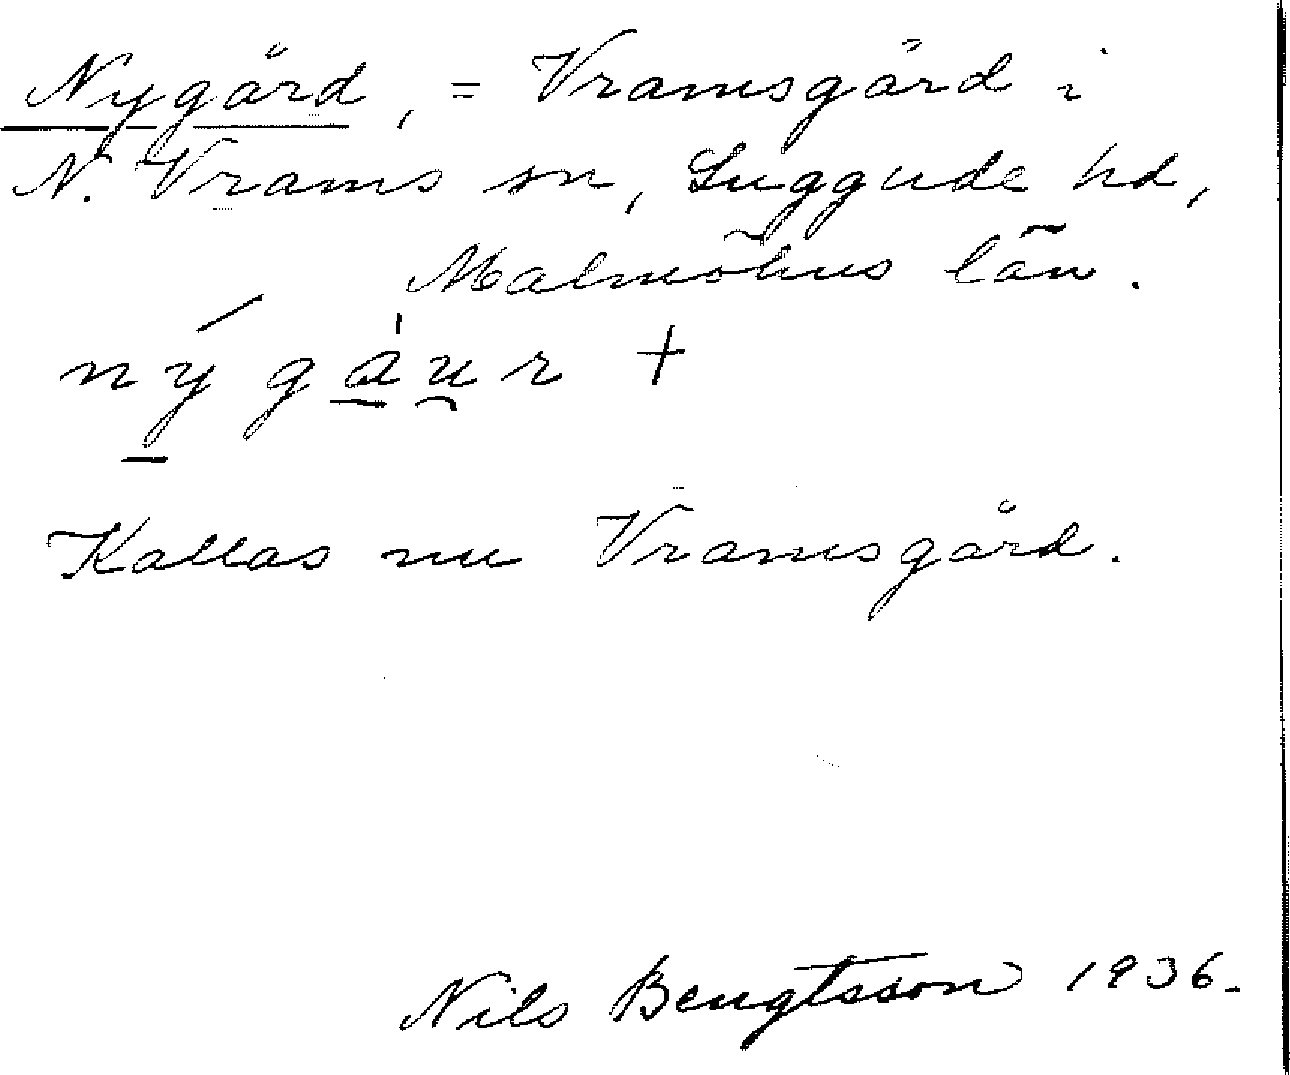 Nygård, = Vramsgård i
N. Vrams sn, Luggude hd,
Malmöhus län.
nýgáu̯r +
Kallas nu Vramsgård.
Nils Bengtsson 1936.